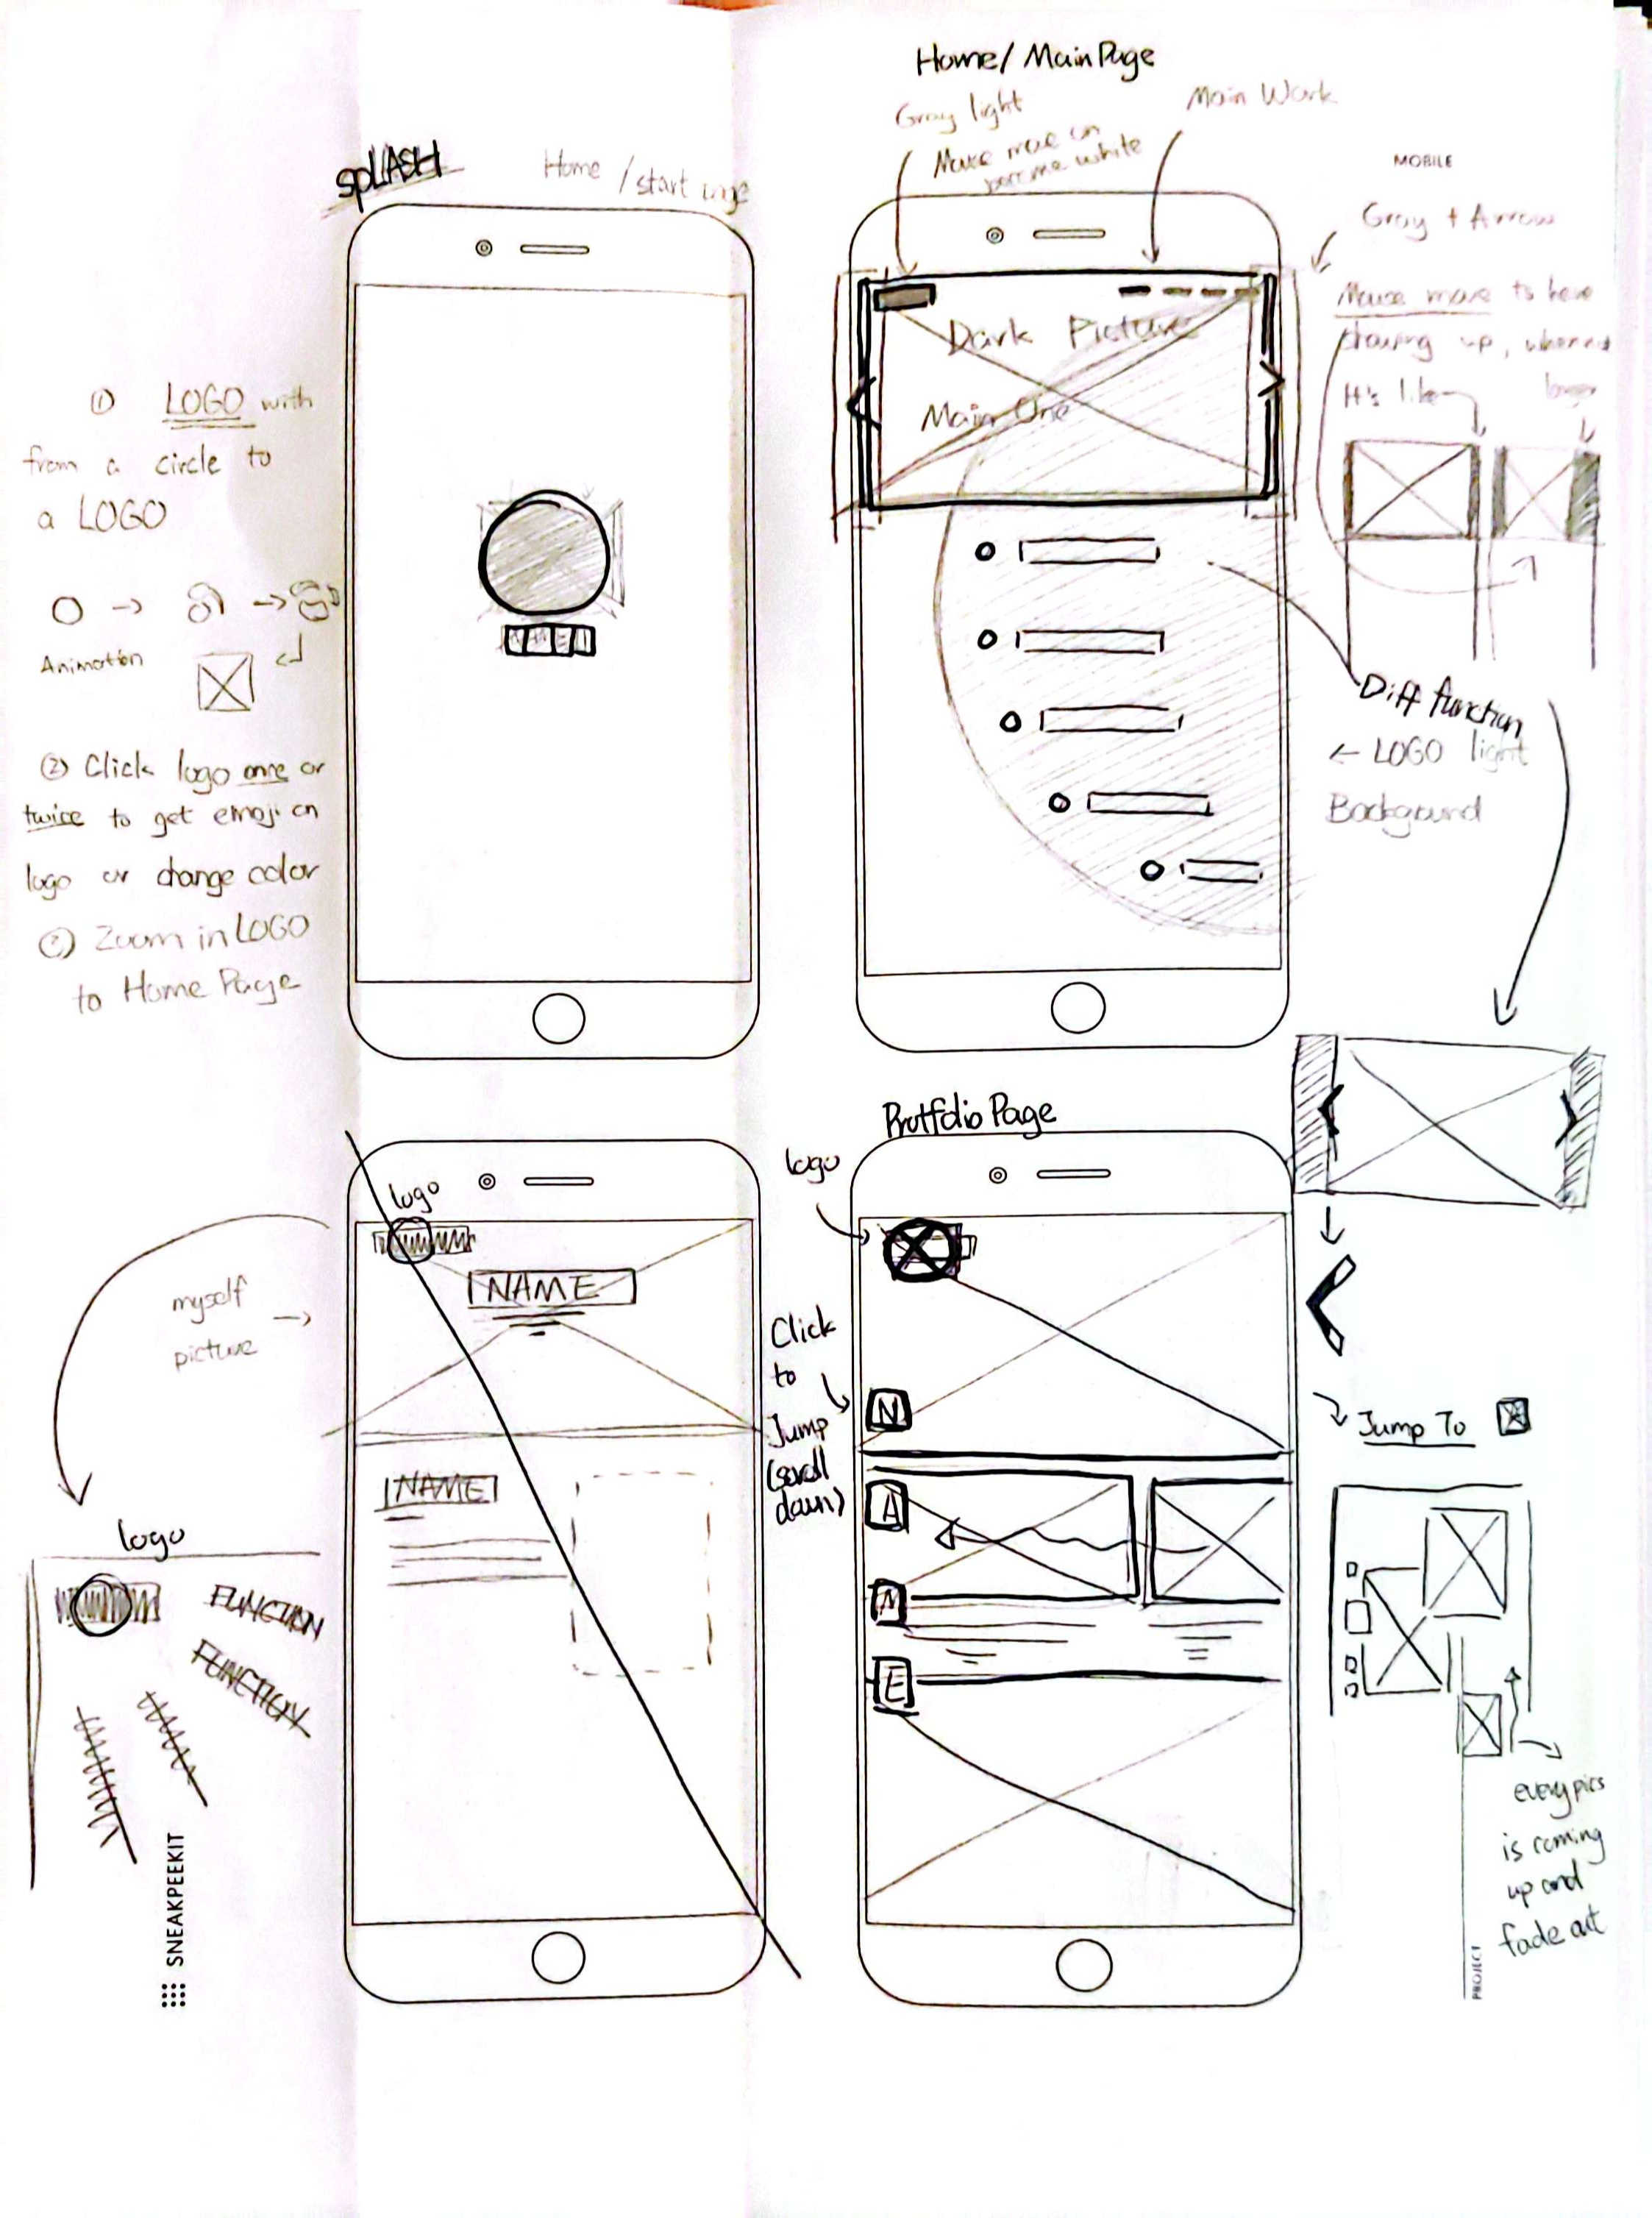 Home/ Main Page
Gray light
Mouse move on
become white
Main Work
MOBILE
SPLASH
Home / start page
Gray + Arrow
Mouse move to here
showing up, when
It's like
longer
Dark Picture
Main One
① LOGO with
from a circle to
a LOGO
Animation
NAME
② Click logo once or
twice to get emoji on
logo or change color
Zoom in LOGO
to Home Page
Diff function
← LOGO light
Background
Protfolio Page
logo
logo
NAME
myself
picture
NAME
Click
to
Jump
(scroll
down)
N
A
M
E
Jump To
logo
FUNCTION
FUNCTION
every pics
is coming
up and
fade out
SNEAKPEEKIT
PROJECT